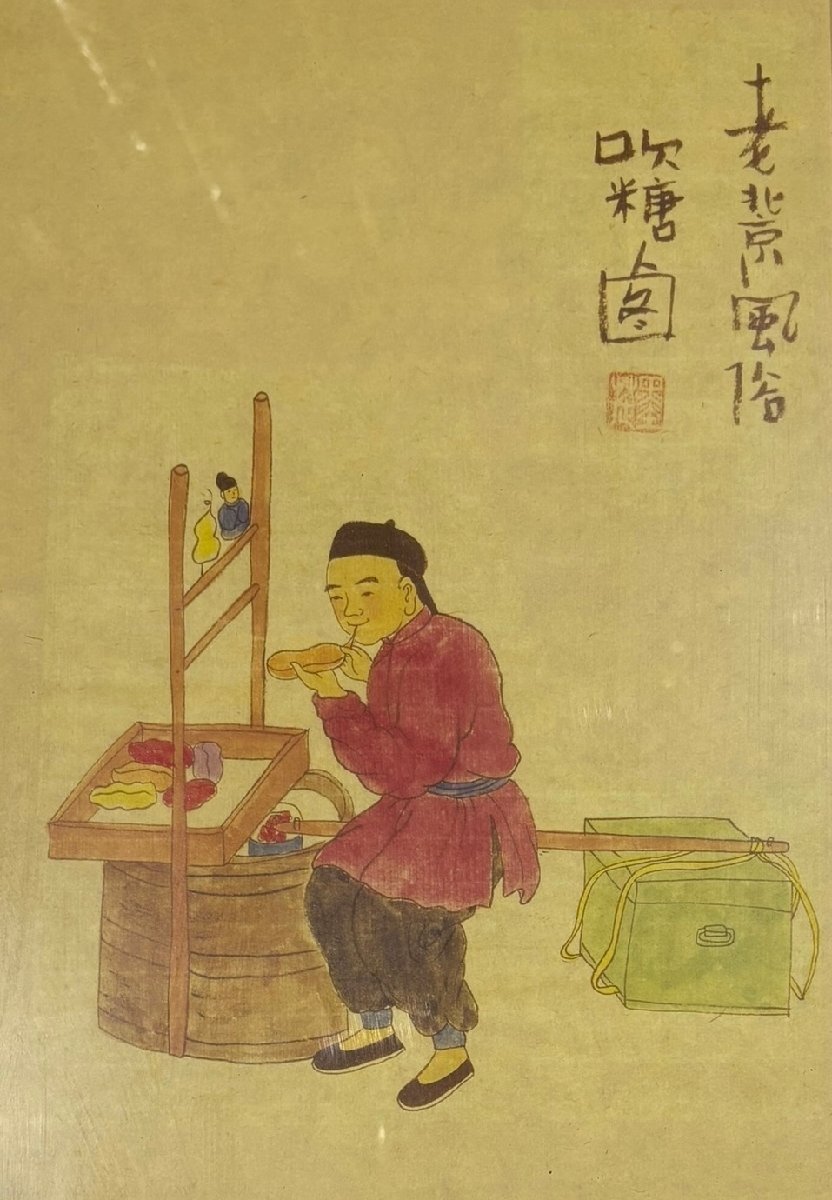 老北京風俗
吹糖圖